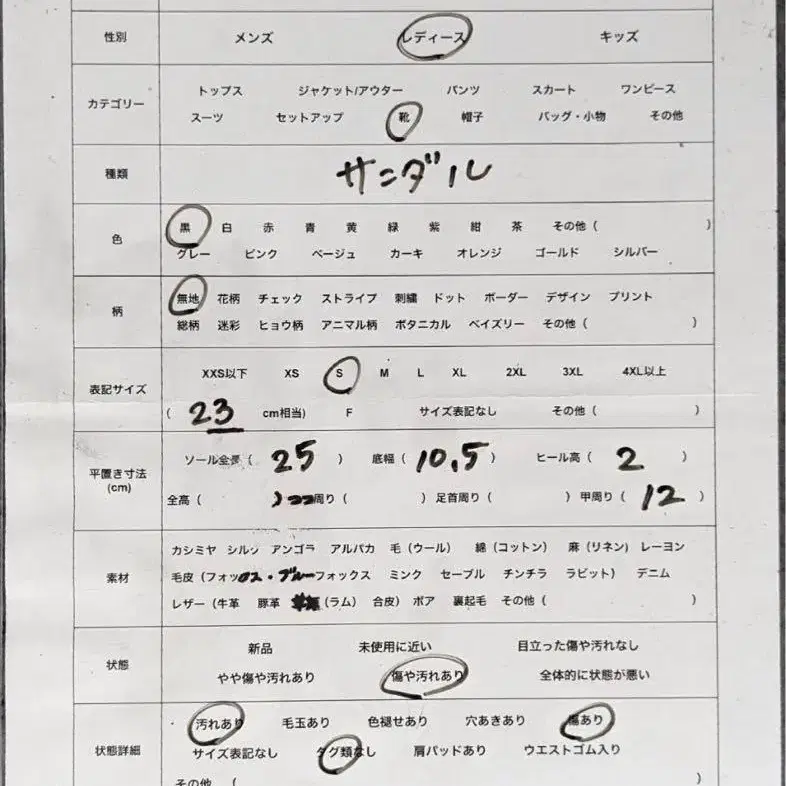 性別 メンズ レディース キッズ
カテゴリー トップス ジャケット/アウター パンツ スカート ワンピース
スーツ セットアップ 靴 帽子 バッグ・小物 その他
種類 サンダル
色 黒 白 赤 青 黄 緑 紫 紺 茶 その他 ( )
グレー ピンク ベージュ カーキ オレンジ ゴールド シルバー
柄 無地 花柄 チェック ストライプ 刺繍 ドット ボーダー デザイン プリント
総柄 迷彩 ヒョウ柄 アニマル柄 ボタニカル ペイズリー その他 ( )
表記サイズ XXS以下 XS S M L XL 2XL 3XL 4XL以上
( 23 cm相当) F サイズ表記なし その他 ( )
平置き寸法 (cm) ソール全長 ( 25 ) 底幅 ( 10.5 ) ヒール高 ( 2 )
全高 ( ) 周り ( ) 足首周り ( ) 甲周り ( 12 )
素材 カシミヤ シルク アンゴラ アルパカ 毛 (ウール) 綿 (コットン) 麻 (リネン) レーヨン
毛皮 (フォックス・ブルーフォックス ミンク セーブル チンチラ ラビット) デニム
レザー (牛革 豚革 (ラム) 合皮) ボア 裏起毛 その他 ( )
状態 新品 未使用に近い 目立った傷や汚れなし
やや傷や汚れあり 傷や汚れあり 全体的に状態が悪い
状態詳細 汚れあり 毛玉あり 色褪せあり 穴あきあり 傷あり
サイズ表記なし タグ類なし 肩パッドあり ウエストゴム入り
その他 ( )